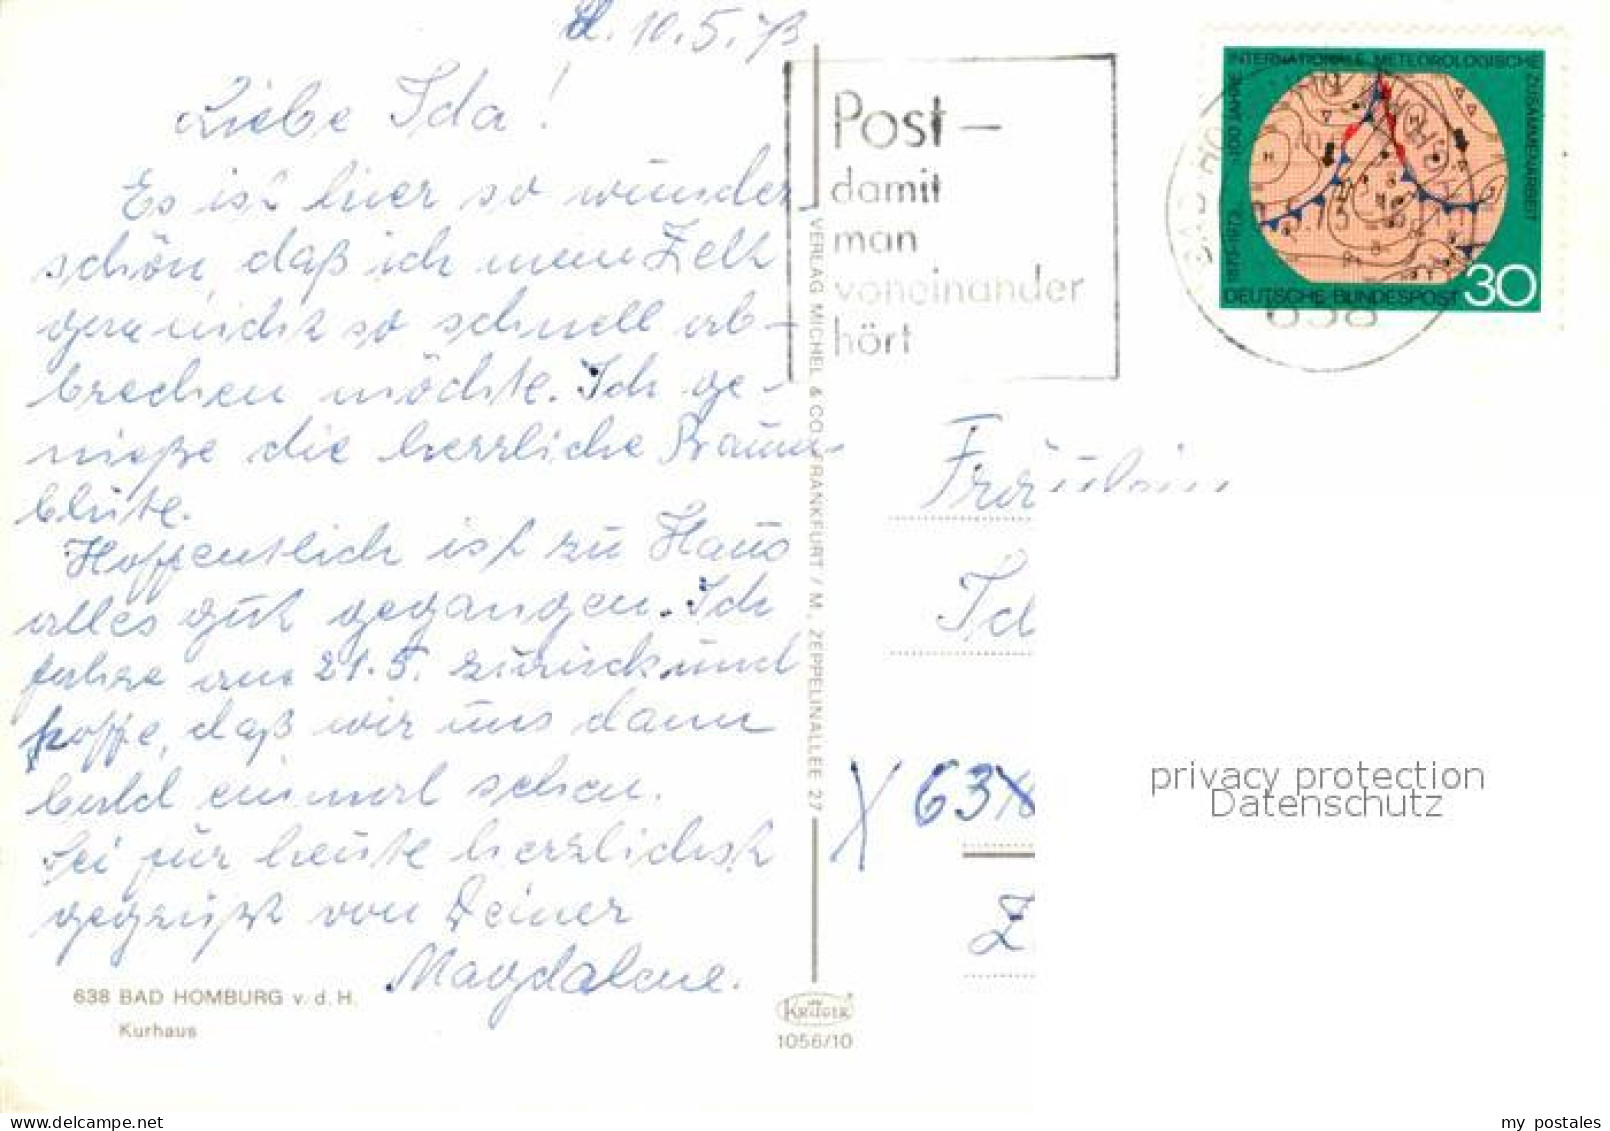 d. 10.5.73
Liebe Ida!
Es ist hier so wunder-
schön, daß ich mein Zelt
gern nicht so schnell ab-
brechen möchte. Ich ge-
nieße die herrliche Baum-
blüte.
Hoffentlich ist zu Haus
alles gut gegangen. Ich
fahre am 21.5. zurück und
hoffe, daß wir uns dann
bald einmal sehen.
Sei für heute herzlichst
gegrüßt von Deiner
Magdalene.
638 BAD HOMBURG v. d. H.
Kurhaus
VERLAG MICHEL & CO. FRANKFURT / M., ZEPPELINALLEE 27
KRÜGER
1056/10
Post –
damit
man
voneinander
hört
BAD HO
638
100 JAHRE INTERNATIONALE METEOROLOGISCHE ZUSAMMENARBEIT
1873-1973
DEUTSCHE BUNDESPOST 30
Fräulein
privacy protection
Datenschutz
my postales